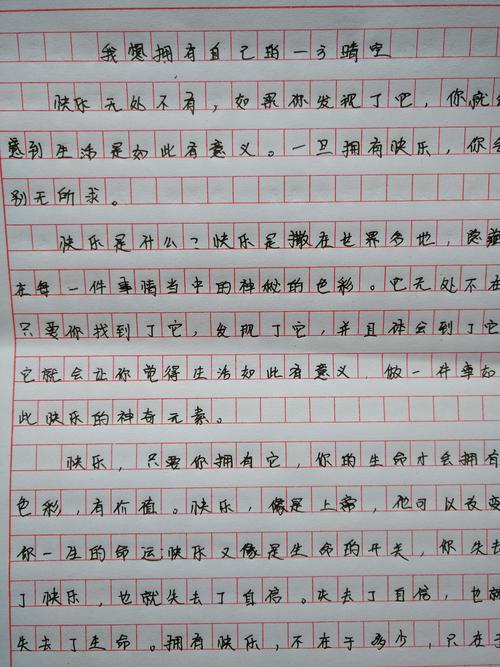 我想拥有自己的一方晴空
快乐无处不有，如果你发现了它，你就会
感到生活是如此有意义。一旦拥有快乐，你会
别无所求。
快乐是什么？快乐是撒在世界各地，隐藏
在每一件事情当中的神秘的色彩。它无处不在
只要你找到了它，发现了它，并且体会到了它
它就会让你觉得生活如此有意义，做一件事如
此快乐的神奇元素。
快乐，只要你拥有它，你的生命才会拥有
色彩，有价值。快乐，像是上帝，他可以改变
你一生的命运快乐又像是生命的开关，你失去
了快乐，也就失去了自信。失去了自信，也就
失去了生命。拥有快乐，不在于多少，只在于